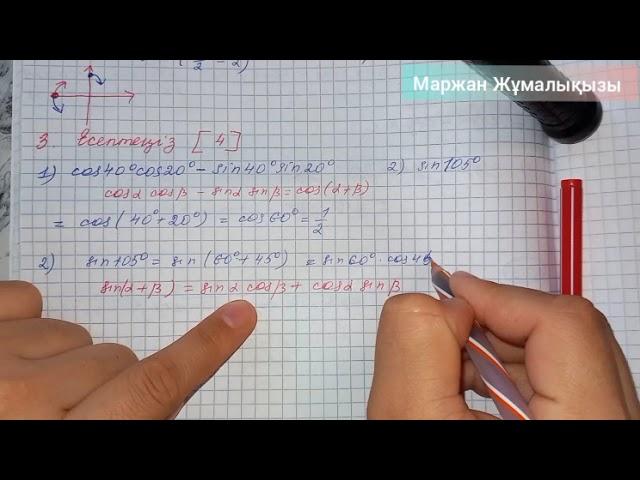 (π/2 - 2)
Маржан Жұмалықызы
3. Есептеңіз [4]
1) cos40°cos20° - sin40°sin20° 2) sin105°
cosα cosβ - sinα sinβ = cos(α+β)
= cos(40°+20°) = cos60° = 1/2
2) sin105° = sin(60°+45°) = sin60°·cos45
sin(α+β) = sinα cosβ + cosα sinβ